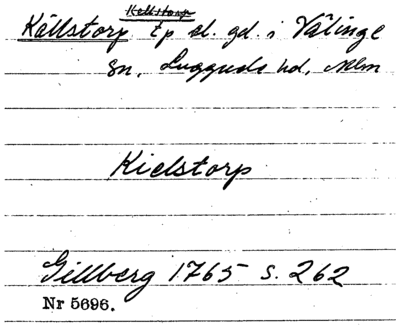 Kellstorp
Källstorp tp sl. gd. i Välinge
sn, Luggude hd, Mlm
Kielstorp
Gillberg 1765 s. 262
Nr 5696.